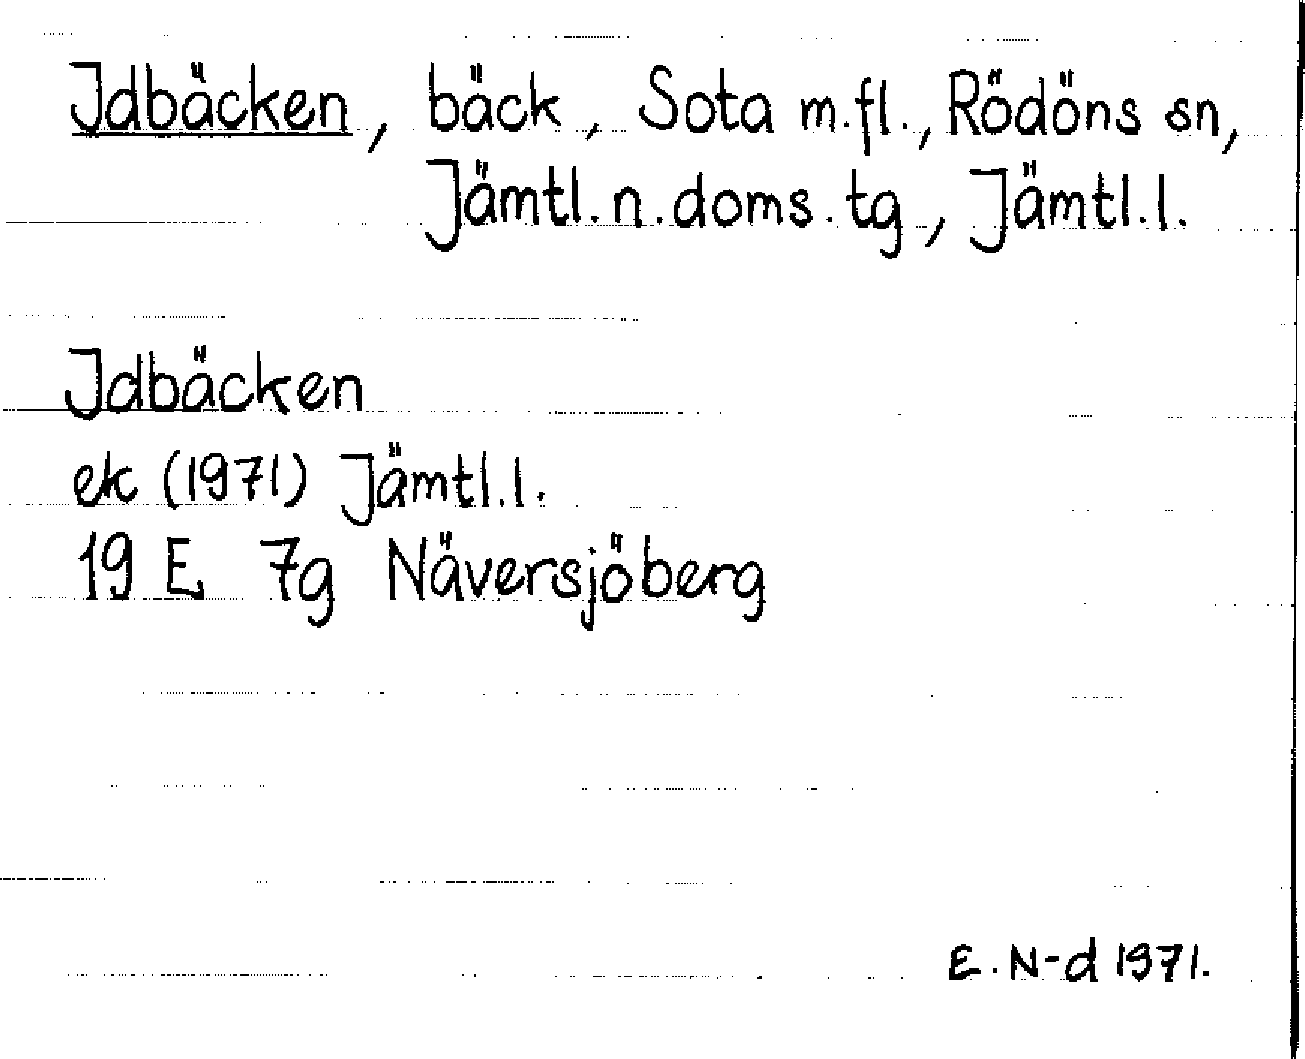 Idbäcken, bäck, Sota m.fl., Rödöns sn,
Jämtl.n.doms.tg, Jämtl.l.
Idbäcken
ek (1971) Jämtl.l.
19 E 7g Näversjöberg
E.N-d 1971.